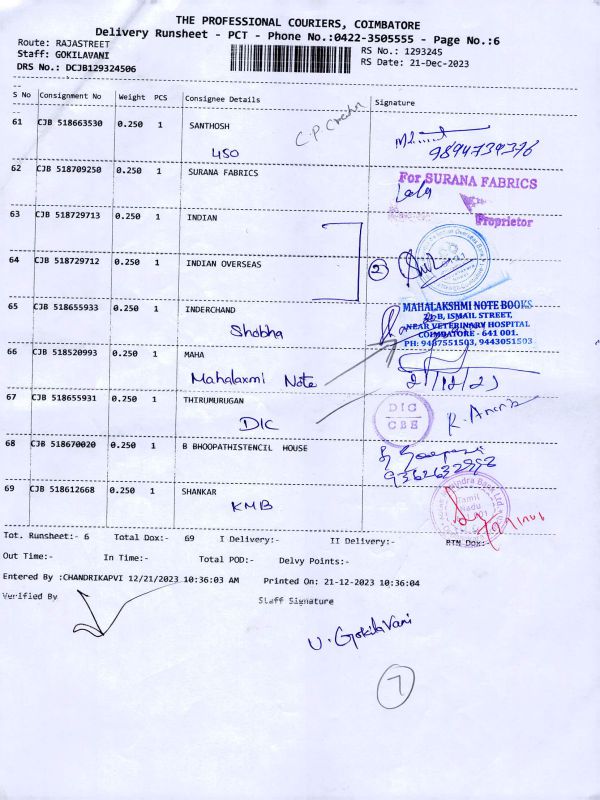 THE PROFESSIONAL COURIERS, COIMBATORE
Delivery Runsheet - PCT - Phone No.:0422-3505555 - Page No.:6
Route: RAJASTREET
Staff: GOKILAVANI
DRS No.: DCJB129324506
RS No.: 1293245
RS Date: 21-Dec-2023
S No Consignment No Weight PCS Consignee Details Signature
61 CJB 518663530 0.250 1 SANTHOSH
450
62 CJB 518709250 0.250 1 SURANA FABRICS
For SURANA FABRICS
Proprietor
63 CJB 518729713 0.250 1 INDIAN
64 CJB 518729712 0.250 1 INDIAN OVERSEAS
2
65 CJB 518655933 0.250 1 INDERCHAND
Shobha
MAHALAKSHMI NOTE BOOKS
21-B, ISMAIL STREET,
NEAR VETERINARY HOSPITAL
COIMBATORE - 641 001.
PH: 9487551503, 9443051503
66 CJB 518520993 0.250 1 MAHA
Mahalaxmi Note
21/12/23
67 CJB 518655931 0.250 1 THIRUMURUGAN
DIC
DIC
CBE
68 CJB 518670020 0.250 1 B BHOOPATHISTENCIL HOUSE
69 CJB 518612668 0.250 1 SHANKAR
KMB
Tamil
Nadu
Tot. Runsheet:- 6 Total Dox:- 69 I Delivery:- II Delivery:- RTN Dox:-
Out Time:- In Time:- Total POD:- Delvy Points:-
Entered By :CHANDRIKAPVI 12/21/2023 10:36:03 AM Printed On: 21-12-2023 10:36:04
Verified By Staff Signature
U. GokilaVani
7